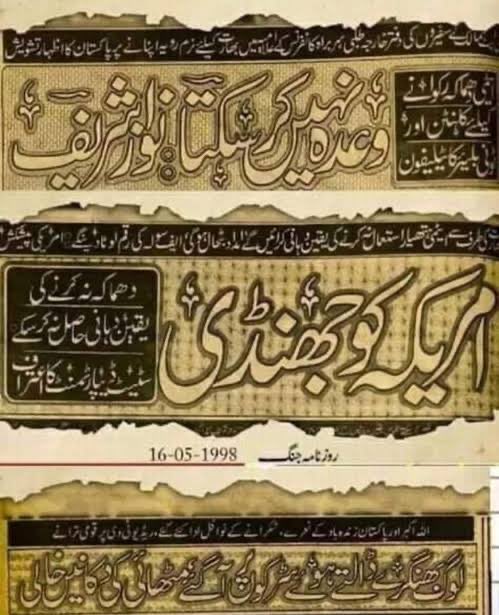 ممالک کے سفیروں کی دفتر خارجہ طلبی، سربراہ کانفرنس کے اعلامیہ میں بھارت کیلئے نرم رویہ اپنانے پر پاکستان کا اظہار تشویش
وعدہ نہیں کر سکتا: نواز شریف
ایٹمی دھماکہ رکوانے
کیلئے کلنٹن اور
ٹونی بلیئر کا ٹیلیفون
کی طرف سے ایٹمی ہتھیار استعمال نہ کرنے کی یقین دہانی کرائیں گے، امداد بحال ہو گی، ایف سولہ کی رقم لوٹا دینگے، امریکی پیشکش
امریکہ کو جھنڈی
دھماکہ نہ کرنے کی
یقین دہانی حاصل نہ کر سکے
سٹیٹ ڈیپارٹمنٹ کا اعتراف
روزنامہ جنگ 16-05-1998
اللہ اکبر اور پاکستان زندہ باد کے نعرے، شکرانے کے نوافل ادا کئے گئے، ریڈیو ٹی وی پر قومی ترانے
لوگ بھنگڑے ڈالتے ہوئے سڑکوں پر آگئے، مٹھائی کی دکانیں خالی